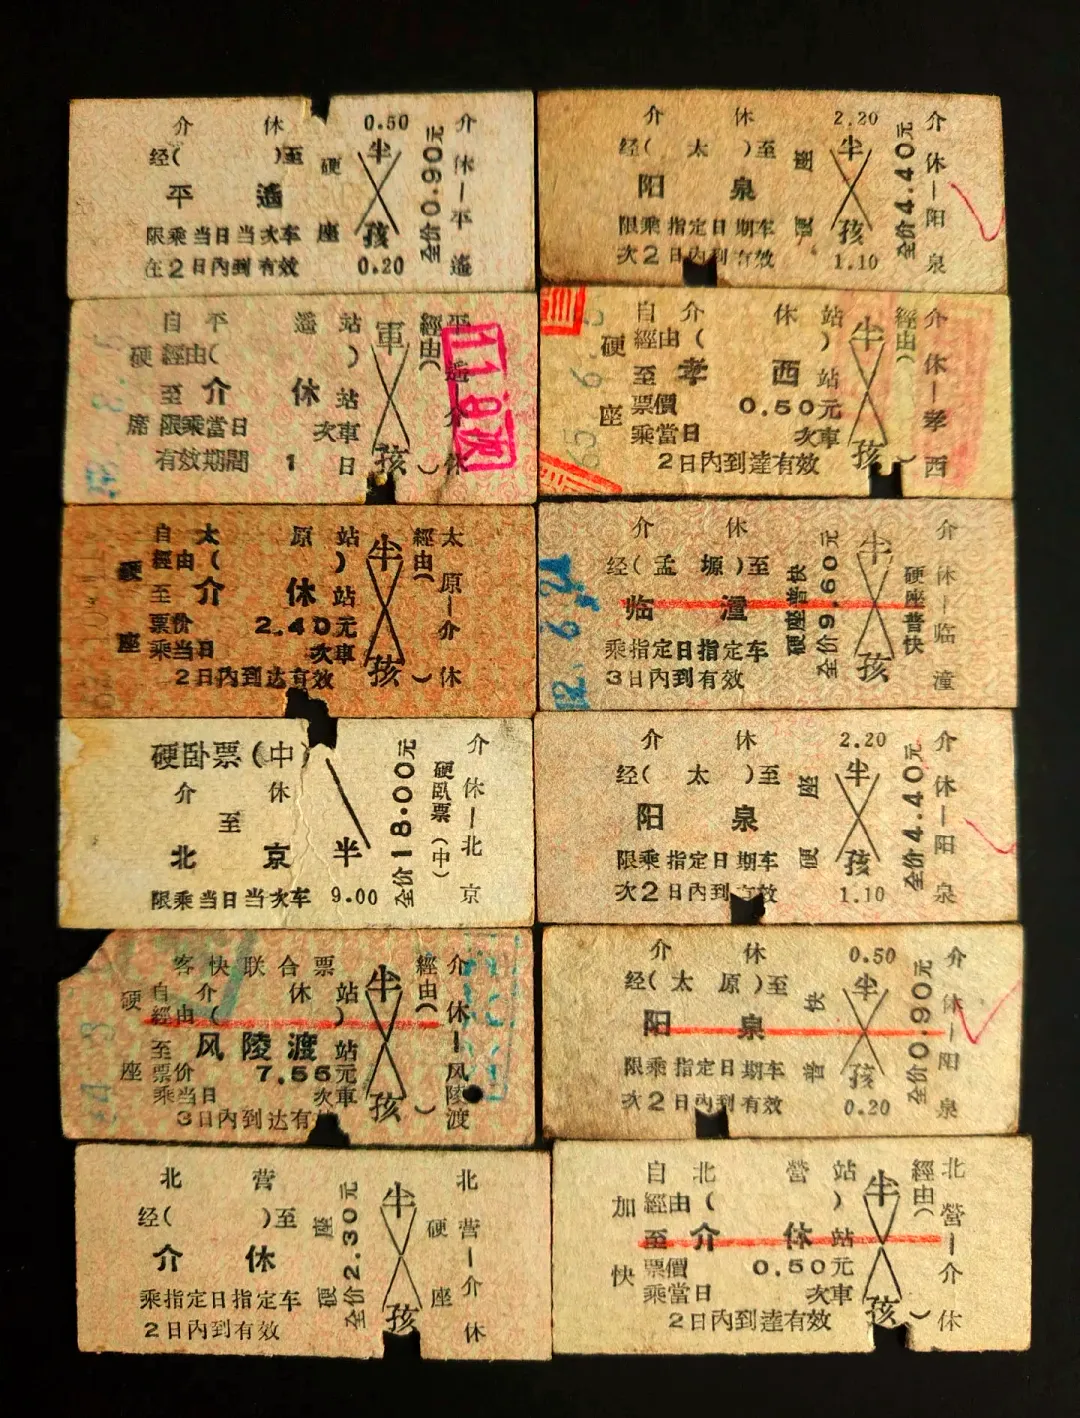 介 休 0.50
经( )至 硬 半
平 遥
限乘当日当次车 座 孩
在2日内到有效 0.20
全价0.90元
介休—平遥
介 休 2.20
经( 太 )至 座 半
阳 泉
限乘指定日期车 硬 孩
次2日内到有效 1.10
全价4.40元
介休—阳泉
自平 遥站 軍
硬 經由( )
至 介 休 站
席 限乘當日 次車
有效期間 1 日 孩
經由( )
平遥—介休
11 8次
自介 休站 半
硬 經由( )
至 孝 西 站
座 票價 0.50元
乘當日 次車
2日內到達有效 孩
經由( )
介休—孝西
65 6
自太 原站 半
硬 經由( )
至 介 休 站
座 票价 2.40元
乘当日 次車
2日内到达有效 孩
經由( )
太原—介休
介 休
经(孟塬)至 半
临 潼
乘指定日指定车
3日内到有效 孩
硬座普快
全价9.60元
硬座普快
介休—临潼
82. 6.
硬卧票(中)
介 休
至
北 京 半
限乘当日当次车 9.00
全价18.00元
硬卧票(中)
介休—北京
介 休 2.20
经( 太 )至 座 半
阳 泉
限乘指定日期车 硬 孩
次2日内到有效 1.10
全价4.40元
介休—阳泉
客快联合票 半
硬 自介 休站
經由( )
至 风陵渡 站
座 票价 7.55元
乘当日 次車
3日内到达有 孩
經由( )
介休—风陵渡
介 休 0.50
经(太原)至 快 半
阳 泉
限乘指定日期车 普 孩
次2日内到有效 0.20
全价0.90元
介休—阳泉
北 营
经( )至 座 半
介 休
乘指定日指定车 硬
2日内到有效 孩
全价2.30元
硬座
北营—介休
自北 營站 半
加 經由( )
至 介 休 站
快 票價 0.50元
乘當日 次車
2日內到達有效 孩
經由( )
北營—介休